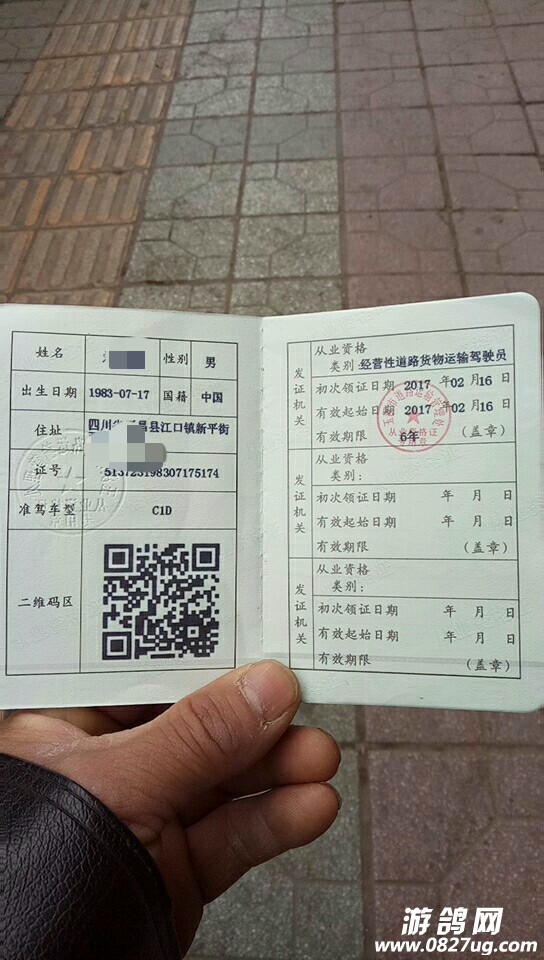 姓名 性别 男
出生日期 1983-07-17 国籍 中国
住址 四川 昌县江口镇新平街
证号 513723198307175174
准驾车型 C1D
二维码区
发证机关
从业资格
类别: 经营性道路货物运输驾驶员
初次领证日期 2017 年 02 月 16 日
有效起始日期 2017 年 02 月 16 日
有效期限 6年 (盖章)
发证机关
从业资格
类别:
初次领证日期 年 月 日
有效起始日期 年 月 日
有效期限 (盖章)
发证机关
从业资格
类别:
初次领证日期 年 月 日
有效起始日期 年 月 日
有效期限 (盖章)
游鸽网
www.0827ug.com